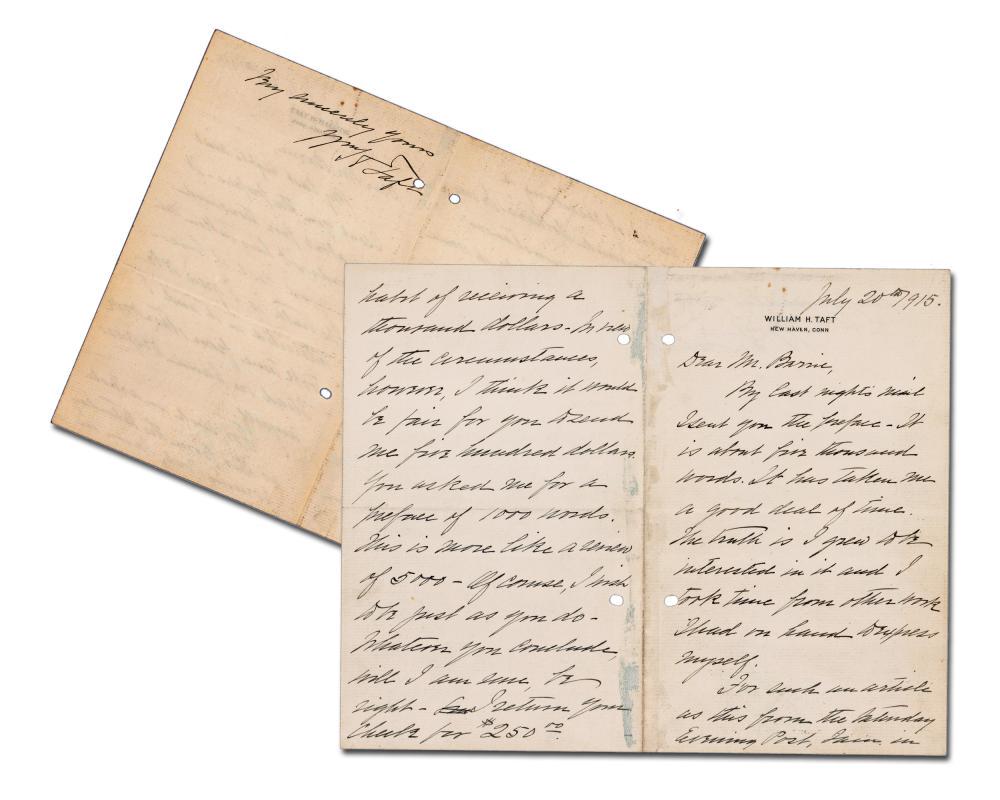 July 20th 1915.
WILLIAM H. TAFT
NEW HAVEN, CONN
Dear Mr. Barrie,
By last nights mail
I sent you the preface - It
is about five thousand
words. It has taken me
a good deal of time.
The truth is I grew to be
interested in it and I
took time from other work
I had on hand to express
myself.
For such an article
as this from the Saturday
Evening Post, I am in
habit of receiving a
thousand dollars - In view
of the circumstances,
however, I think it would
be fair for you to send
me five hundred dollars.
You asked me for a
preface of 1000 words.
This is more like a review
of 5000 - Of course, I wish
to be just as you do -
Whatever you conclude,
will I am sure, be
right - I return your
check for $250.00
Very sincerely yours
Wm H Taft